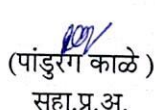 (पांडुरंग काळे )
सहा.प्र.अ.